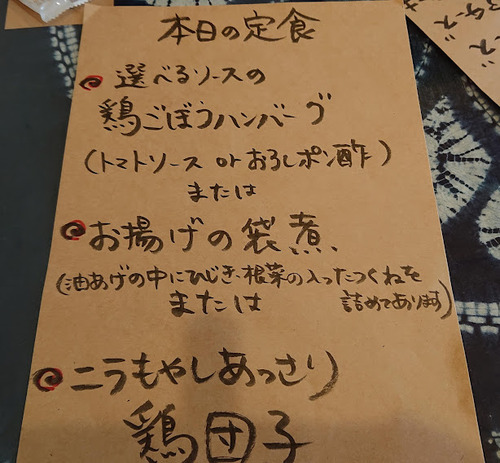 本日の定食
選べるソースの
鶏ごぼうハンバーグ
(トマトソース or おろしポン酢)
または
お揚げの袋煮、
(油あげの中にひじき・根菜の入ったつくねを
詰めてあります)
または
ニラもやしあっさり
鶏団子